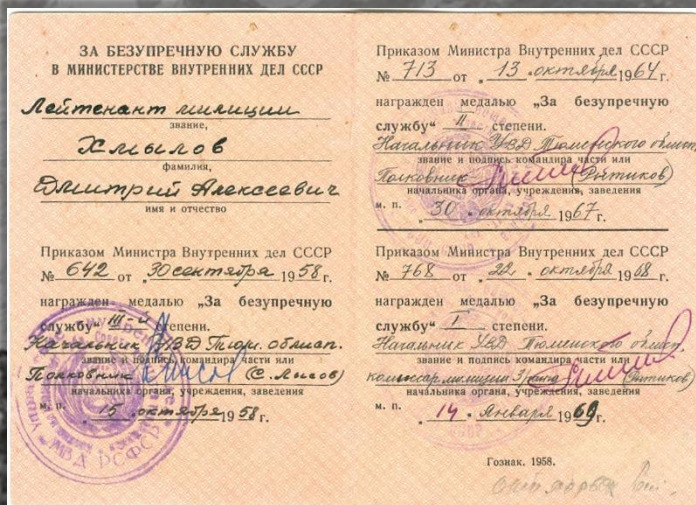 ЗА БЕЗУПРЕЧНУЮ СЛУЖБУ
В МИНИСТЕРСТВЕ ВНУТРЕННИХ ДЕЛ СССР
Лейтенант милиции
звание,
Хмылов
фамилия,
Дмитрий Алексеевич
имя и отчество
Приказом Министра Внутренних дел СССР
№ 642 от „30 сентября 1958 г.
награжден медалью „За безупречную
службу“ III-й степени.
Начальник УВД Тюм. област.
звание и подпись командира части или
Полковник (С. Лисов)
начальника органа, учреждения, заведения
м. п. „15 октября 1958 г.
МВД РСФСР
Приказом Министра Внутренних дел СССР
№ 713 от „13 октября 1964 г.
награжден медалью „За безупречную
службу“ II степени.
Начальник УВД Тюменской област.
звание и подпись командира части или
Полковник
начальника органа, учреждения, заведения
м. п. „30 октября 1967 г.
Приказом Министра Внутренних дел СССР
№ 768 от „22 октября 1968 г.
награжден медалью „За безупречную
службу“ I степени.
Начальник УВД Тюменской област.
звание и подпись командира части или
комиссар милиции 3 ранга
начальника органа, учреждения, заведения
м. п. „14 января 1969 г.
Гознак. 1958.